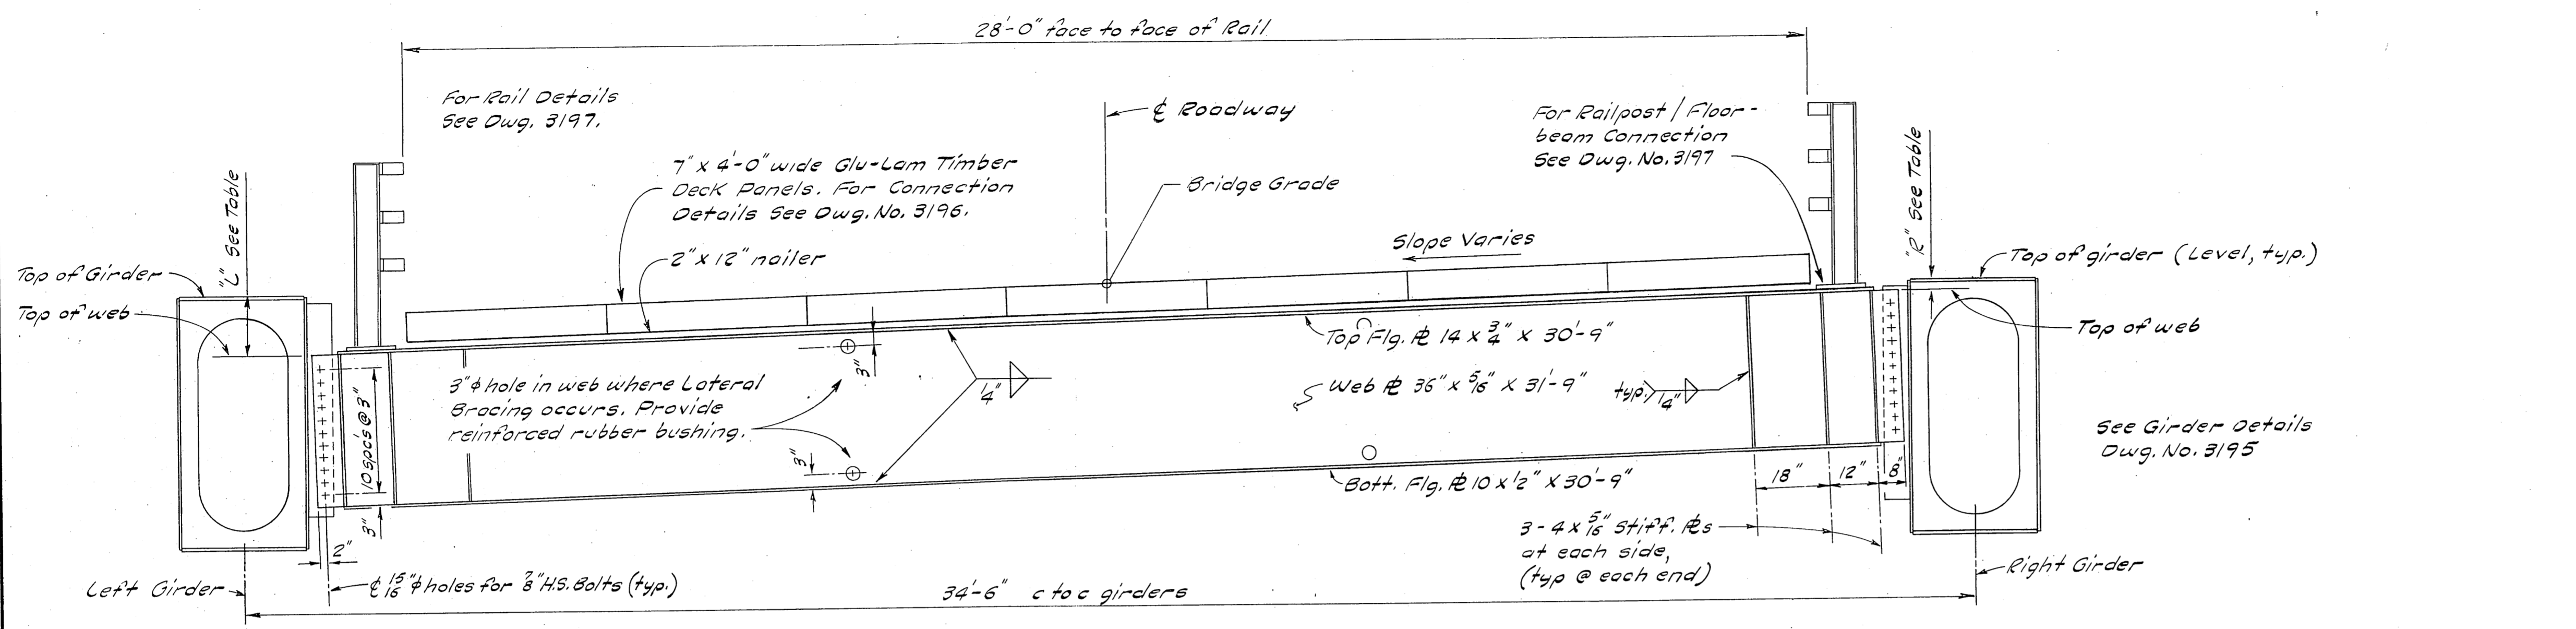 28'-0" face to face of Rail
For Rail Details
See Dwg. 3197.
℄ Roadway
For Railpost / Floor-
beam Connection
See Dwg. No. 3197
7" x 4'-0" wide Glu-Lam Timber
Deck Panels. For Connection
Details See Dwg. No. 3196.
Bridge Grade
"L" See Table
"R" See Table
Slope Varies
2" x 12" nailer
Top of Girder
Top of girder (Level, typ.)
Top of web
Top of web
Top Flg. ℄ 14 x 3/4" x 30'-9"
3"
3" ϕ hole in web where Lateral
Bracing occurs. Provide
reinforced rubber bushing.
1/4"
Web ℄ 36" x 5/16" x 31'-9"
typ. 1/4"
10 spc's @ 3"
See Girder Details
Dwg. No. 3195
3"
Bott. Flg. ℄ 10 x 1/2" x 30'-9"
18"
12"
8"
3"
2"
3 - 4 x 5/16" Stiff. ℄s
at each side,
(typ @ each end)
Left Girder
℄ 15/16" ϕ holes for 7/8" H.S. Bolts (typ.)
34'-6" c to c girders
Right Girder